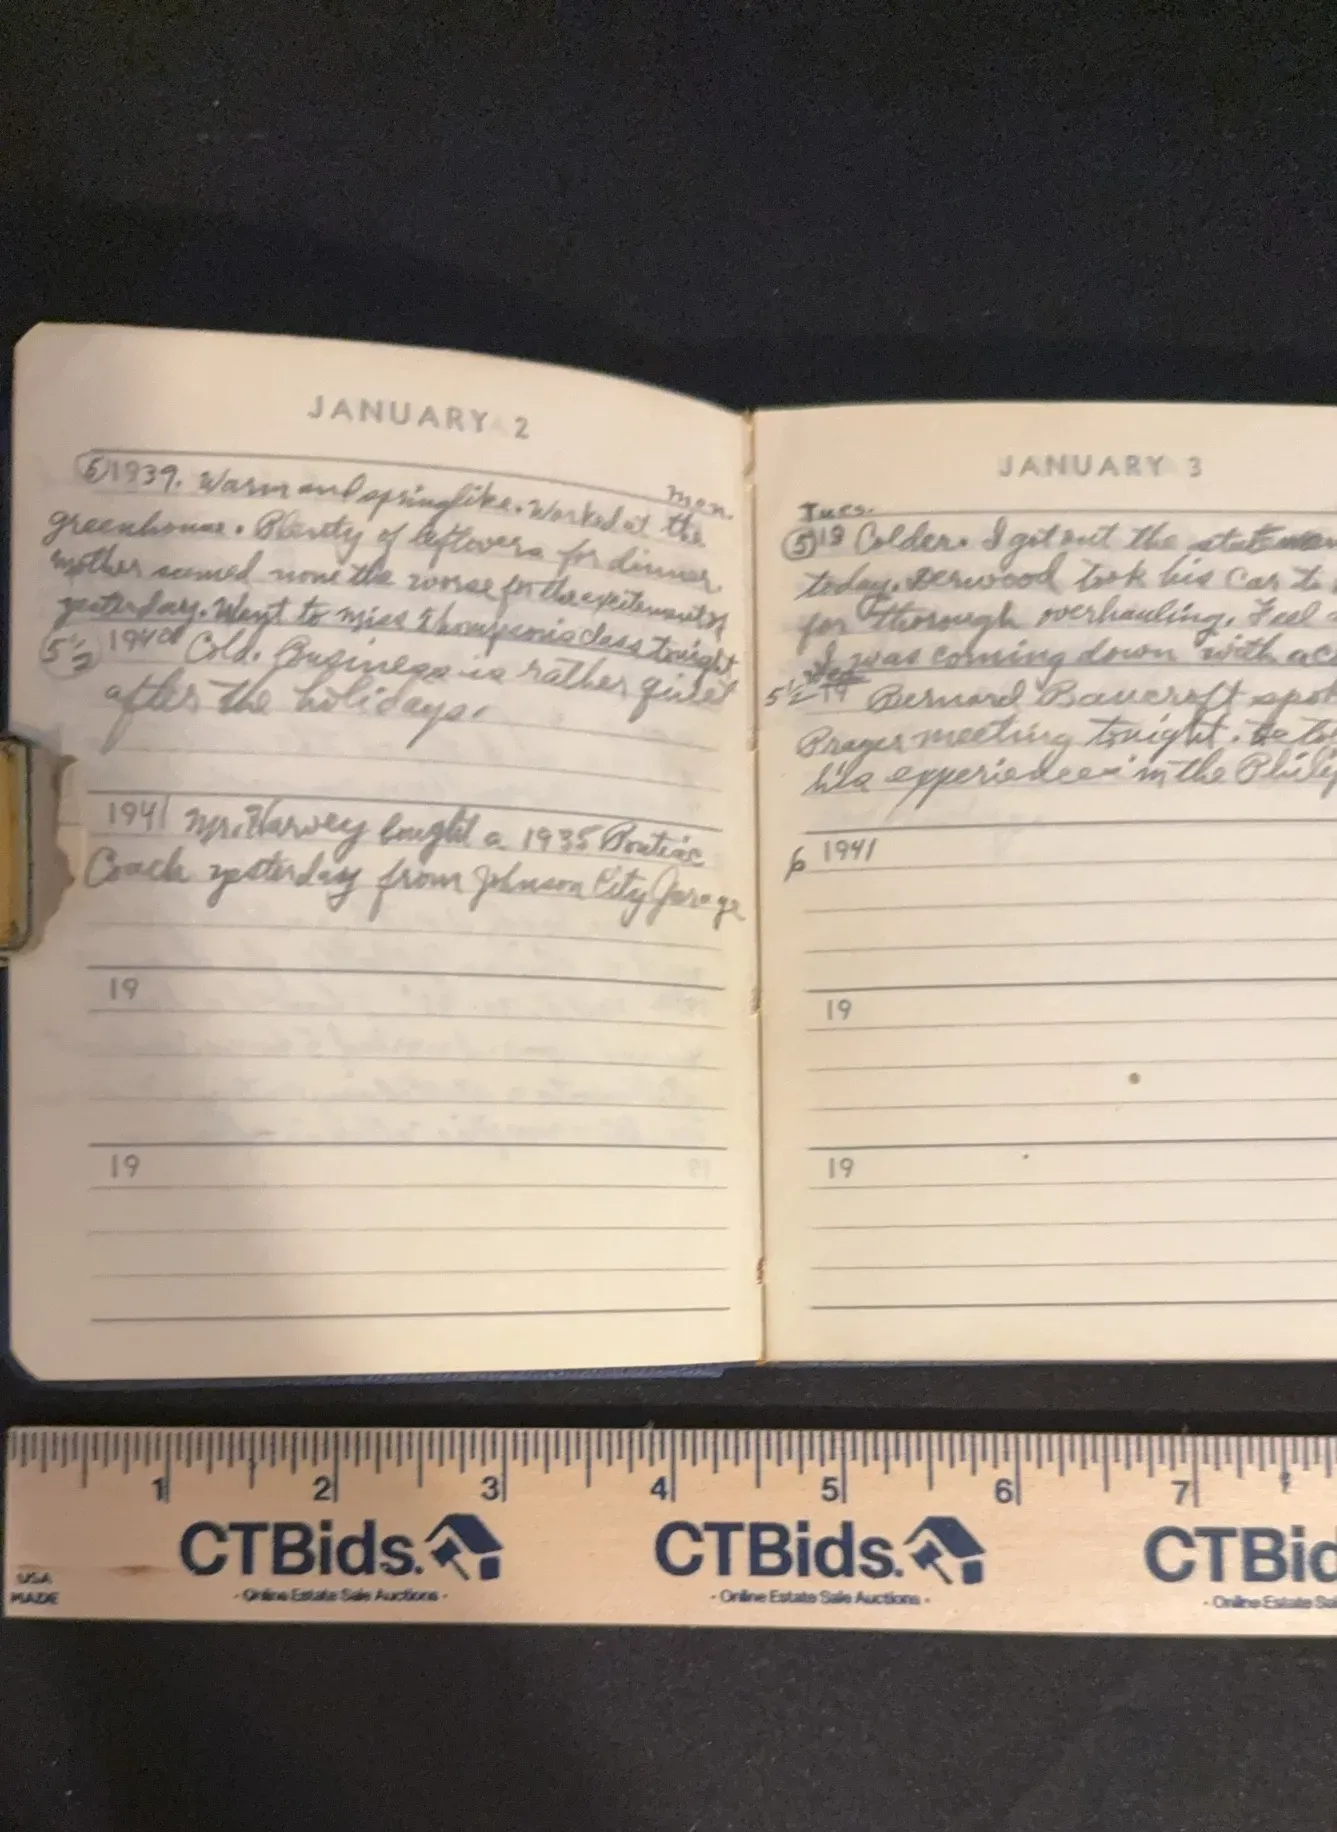 JANUARY 2
Mon.
(5) 1939. Warm and springlike. Worked at the
greenhouse. Plenty of leftovers for dinner.
Mother seemed none the worse for the excitement of
yesterday. Went to Miss Thompson's class tonight
5 1/2 1940 Cold. Business is rather quiet
after the holidays.
1941 Mr. Harvey bought a 1935 Pontiac
Coach yesterday from Johnson City Garage
19
19
JANUARY 3
Tues.
(5) 19 Colder. I got out the statemen
today. Derwood took his car to
for thorough overhauling. Feel
I was coming down with a c
Wed
5 1/2 19 Bernard Bancroft spok
Prayer meeting tonight. He to
his experiences in the Philip
6 1941
19
19
1 2 3 4 5 6 7
CTBids. CTBids. CTBid
- Online Estate Sale Auctions - - Online Estate Sale Auctions - - Online Estate Sal
USA
MADE